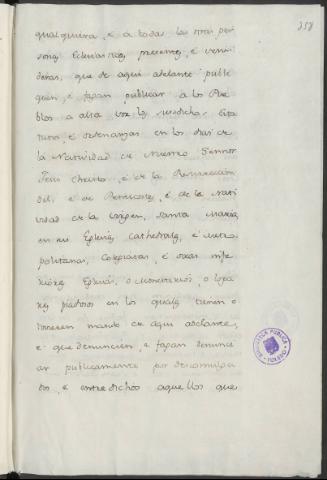 358
qualquiera, e a todas las otras per
sonas Eclesiasticas presentes, e veni
deras, que de aqui adelante publi
quen, e fagan publicar a los Pue
blos a alta voz los susodichos Esta
tutos, e ordenanzas en los dias de
la Natividad de Nuestro Sennor
Jesu Christo, e de la Resurreccion
del, e de Pentecoste, e de la nati
vidad de la Virgen, Santa Maria
en sus Eglesias Cathedrales, e Metro
politanas, Colegiatas, e otras infe
riores Eglesias, o Monesterios, o logra
res piadosos en los quales tienen o
tovieren mando de aqui adelante,
e que denuncien, e fagan denunci
ar publicamente por descomulga
dos, e entredichos aquellos que
BIBLIOTECA PUBLICA
TOLEDO